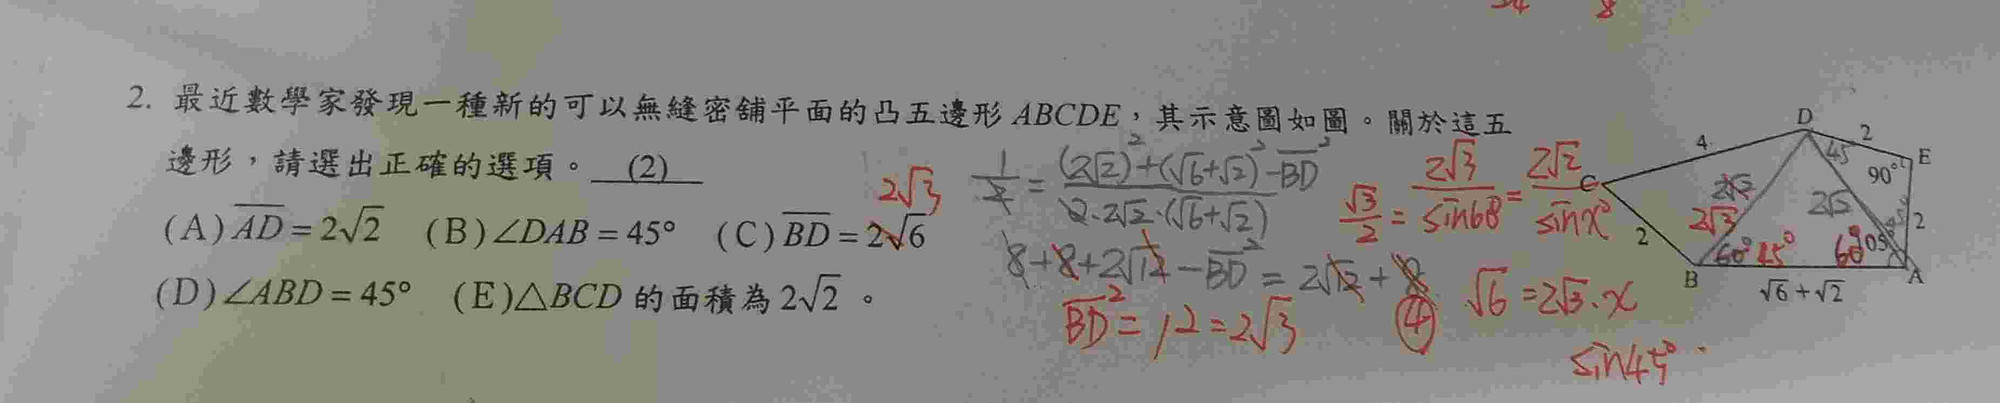 2. 最近數學家發現一種新的可以無縫密舖平面的凸五邊形 ABCDE，其示意圖如圖。關於這五
邊形，請選出正確的選項。 (2)
(A) AD = 2√2 (B) ∠DAB = 45° (C) BD = 2√6
2√3
(D) ∠ABD = 45° (E) △BCD 的面積為 2√2 。
1/2 = (2√2)²+(√6+√2)²-BD² / 2·2√2·(√6+√2)
8+8+2√12-BD² = 2√12+8
BD² = 12 = 2√3
④
√3/2 = 2√3/sin60° = 2√2/sinx°
√6 = 2√3·x
sin45°
D
4
2
45
E
90°
C
2√2
2√3
2√2
2
2
60° 45°
60°
105
B
A
√6+√2